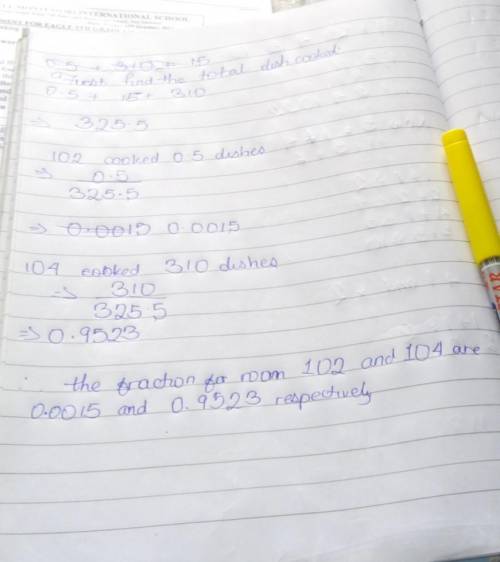 INTERNATIONAL SCHOOL
0.5 + 310 = 15
First find the total dish cooked
0.5 + 15 + 310
⇒ 325.5
102 cooked 0.5 dishes
⇒ 0.5
325.5
⇒ 0.0015 0.0015
104 cooked 310 dishes
⇒ 310
325.5
⇒ 0.9523
∴ the fraction for room 102 and 104 are
0.0015 and 0.9523 respectively